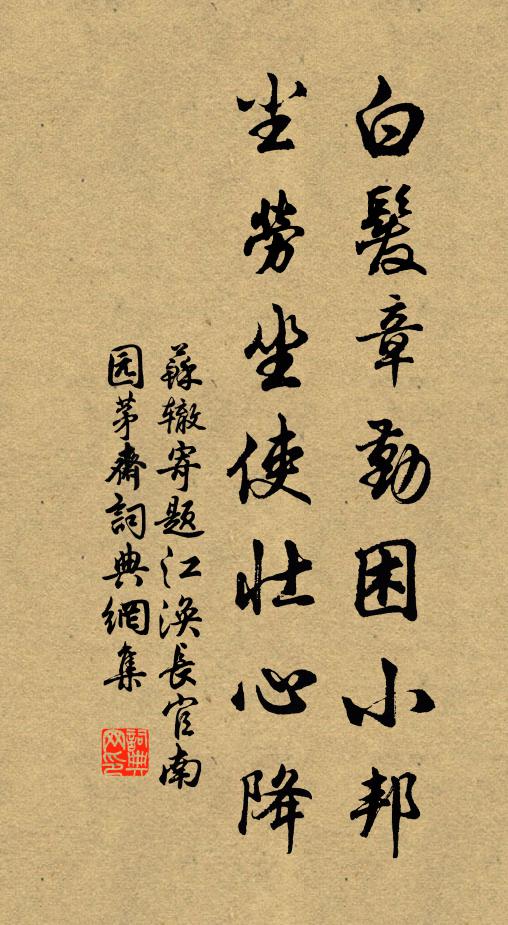 白髮章勤困小邦
尘勞坐使壮心降
蘇辙寄題江涣長官南
园茅齋詞典網集
詞典网印